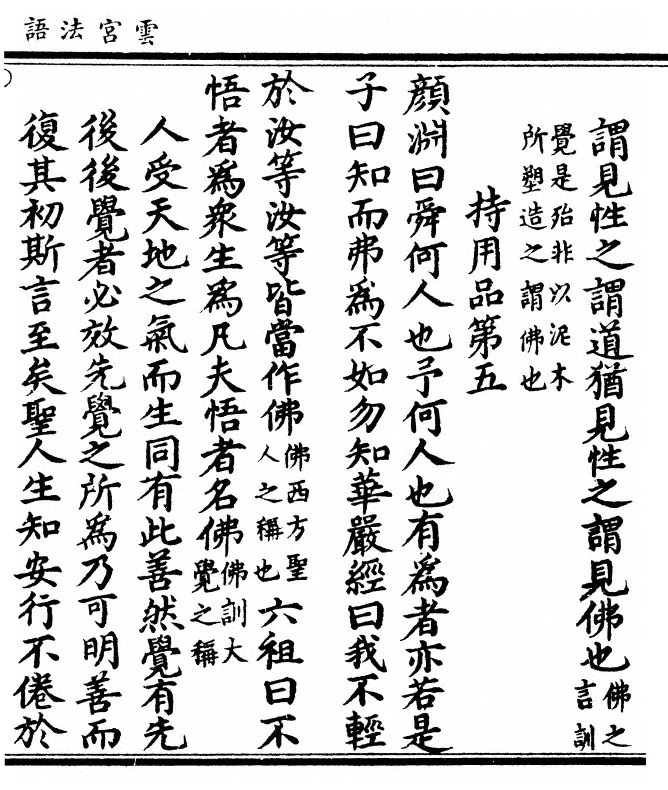 雲宮法語
謂見性之謂道猶見性之謂見佛也佛之言訓
覺是殆非以泥木所塑造之謂佛也
持用品第五
顔淵曰舜何人也予何人也有爲者亦若是
子曰知而弗爲不如勿知華嚴經曰我不輕
於汝等汝等皆當作佛佛西方聖人之稱也六祖曰不
悟者爲衆生爲凡夫悟者名佛佛訓大覺之稱
人受天地之氣而生同有此善然覺有先
後後覺者必效先覺之所爲乃可明善而
復其初斯言至矣聖人生知安行不倦於